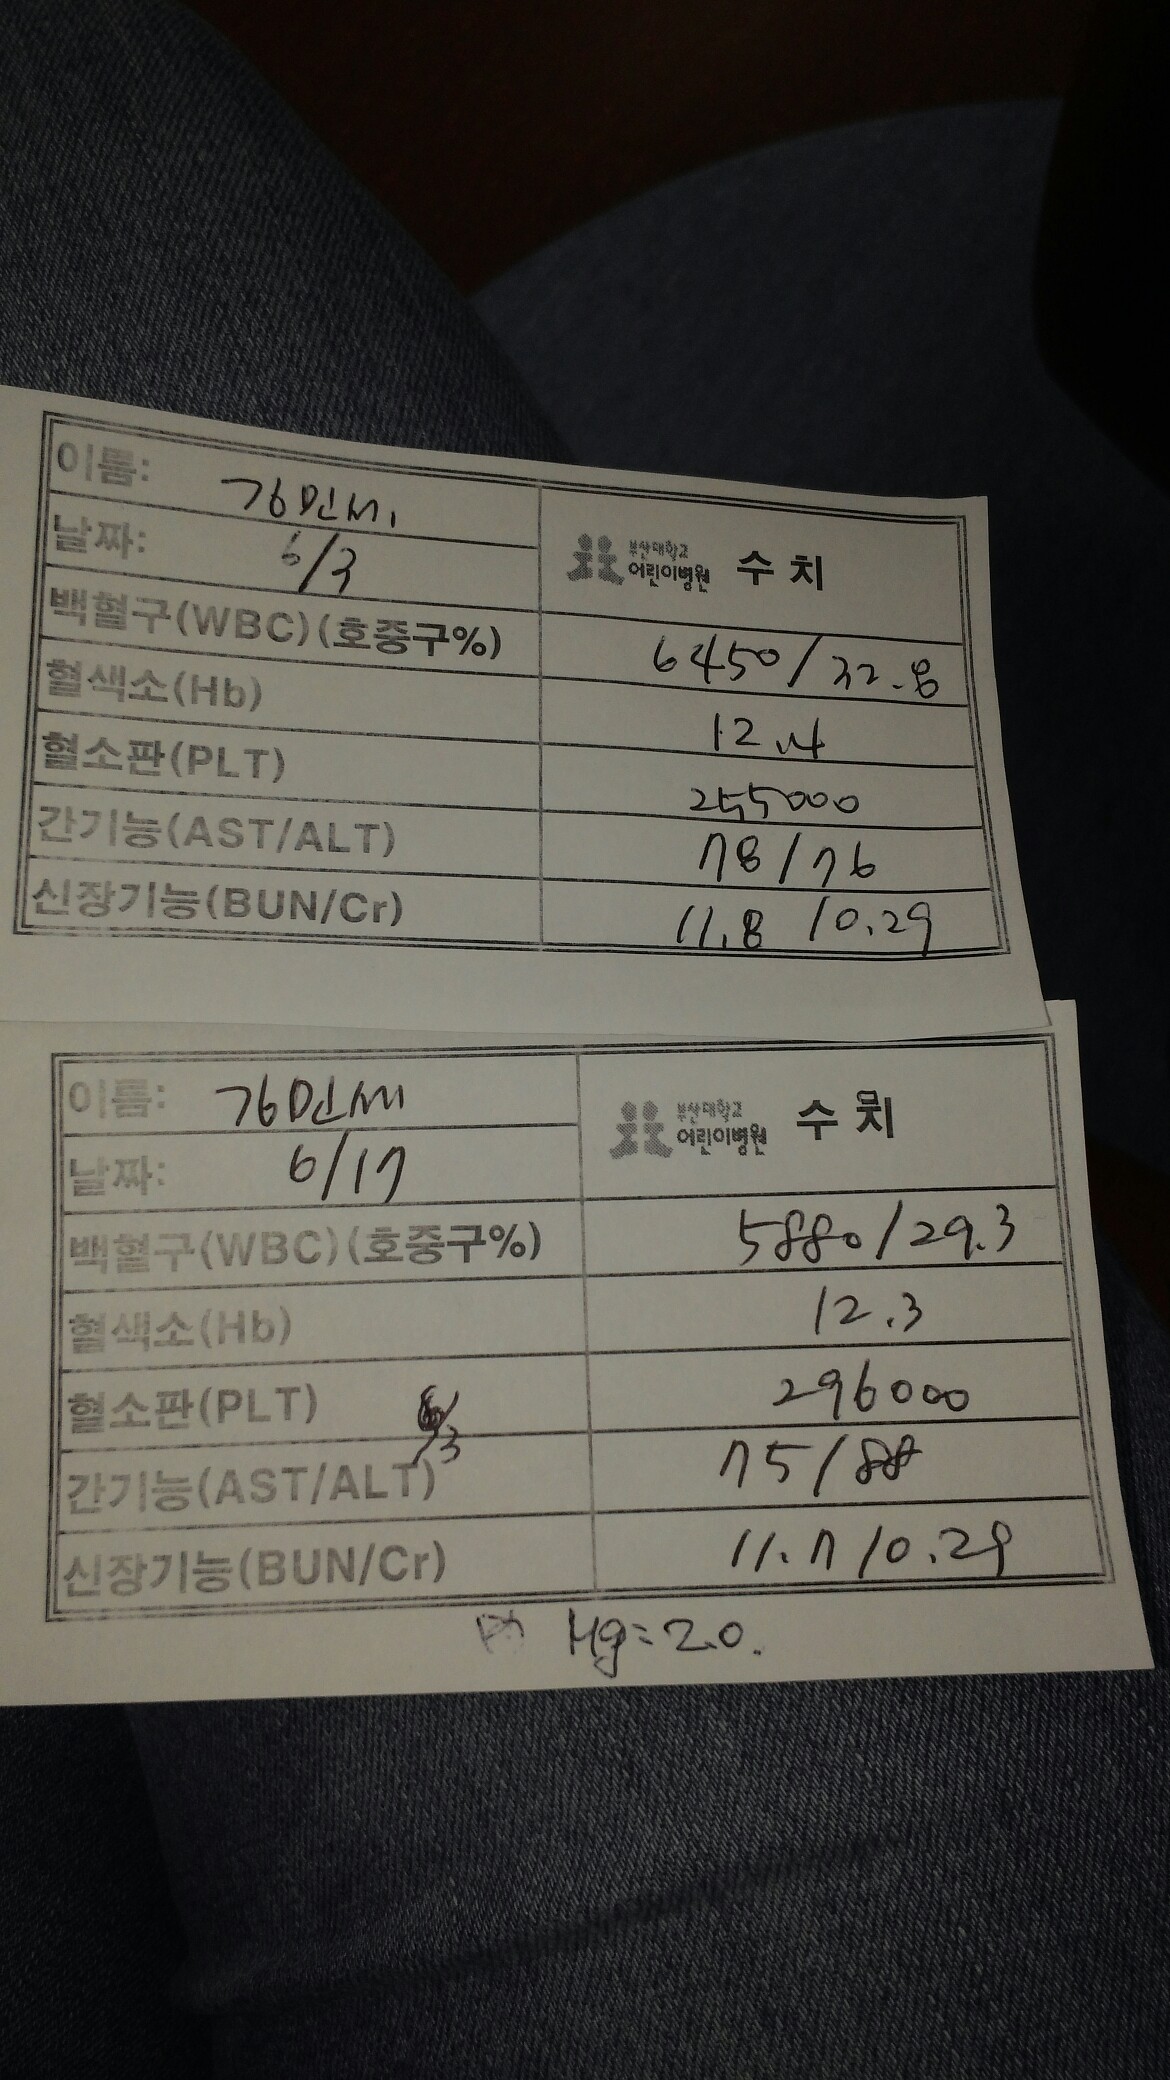 이름: 강민서
날짜: 6/3
부산대학교
어린이병원 수치
백혈구(WBC)(호중구%) 6450/32.8
혈색소(Hb) 12.4
혈소판(PLT) 255000
간기능(AST/ALT) 78/76
신장기능(BUN/Cr) 11.8 /0.29
이름:
날짜: 6/17
부산대학교
어린이병원 수치
백혈구(WBC)(호중구%) 5880/29.3
혈색소(Hb) 12.3
혈소판(PLT) 296000
/3
간기능(AST/ALT) 75/88
신장기능(BUN/Cr) 11.7/0.29
Mg=2.0.